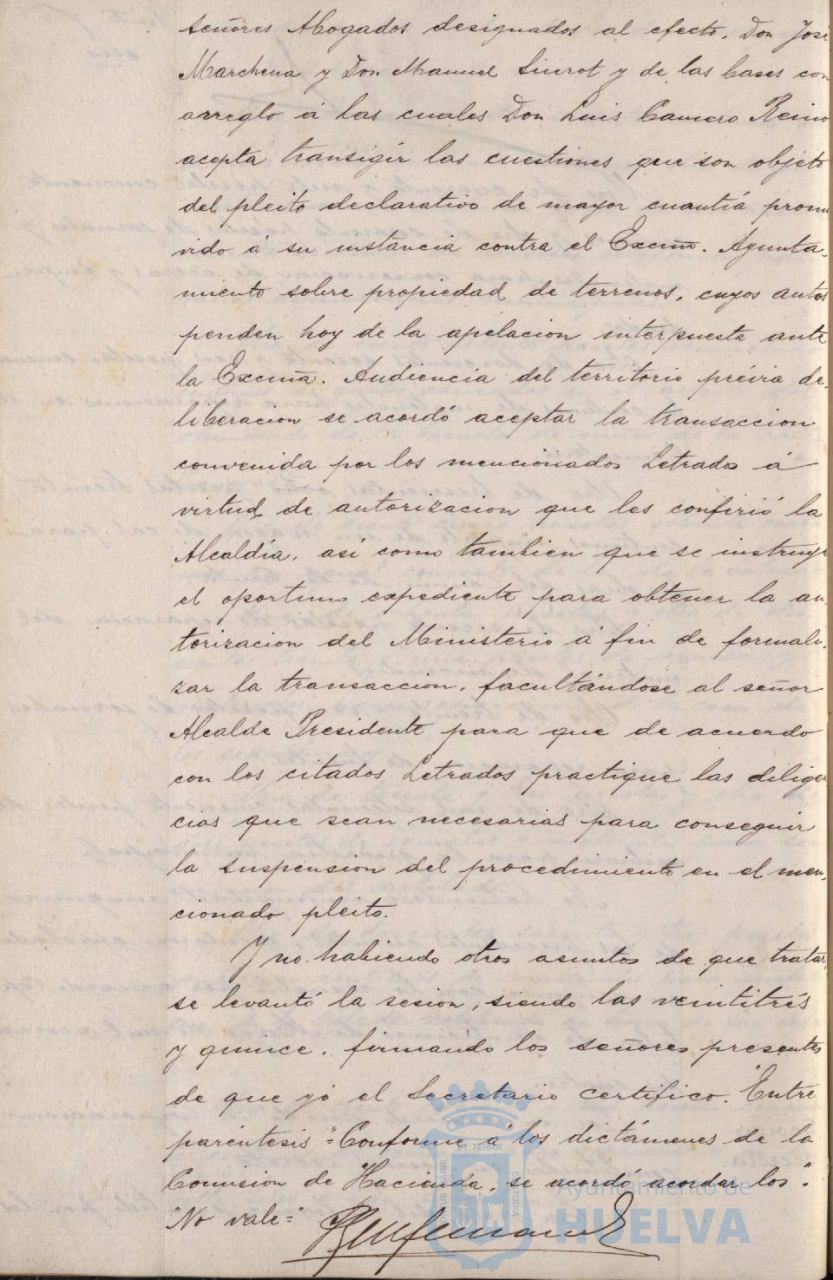 señores Abogados designados al efecto, Don José
Marchena y Don Manuel Siurot y de las bases con
arreglo á las cuales Don Luis Camero Reino
acepta transigir las cuestiones que son objeto
del pleito declarativo de mayor cuantiá promo
vido á su instancia contra el Excmo. Ayunta-
miento sobre propiedad de terrenos, cuyos autos
penden hoy de la apelacion interpuesta ante
la Excma. Audiencia del territorio prévia de-
liberacion se acordó aceptar la transaccion
convenida por los mencionados Letrados á
virtud de autorizacion que les confirió la
Alcaldía, así como tambien que se instruya
el oportuno expediente para obtener la au
torizacion del Ministerio á fin de formali-
zar la transaccion, facultándose al señor
Alcalde Presidente para que de acuerdo
con los citados Letrados practique las diligen
cias que sean necesarias para conseguir
la suspension del procedimiento en el men-
cionado pleito.
Y no habiendo otros asuntos de que tratar,
se levantó la sesion, siendo las veintitrés
y quince, firmando los señores presentes
de que yo el Secretario certifico. Entre
paréntesis "Conforme á los dictámenes de la
Comision de Hacienda, se acordó acordar los".
"No vale"
Ayuntamiento de
HUELVA